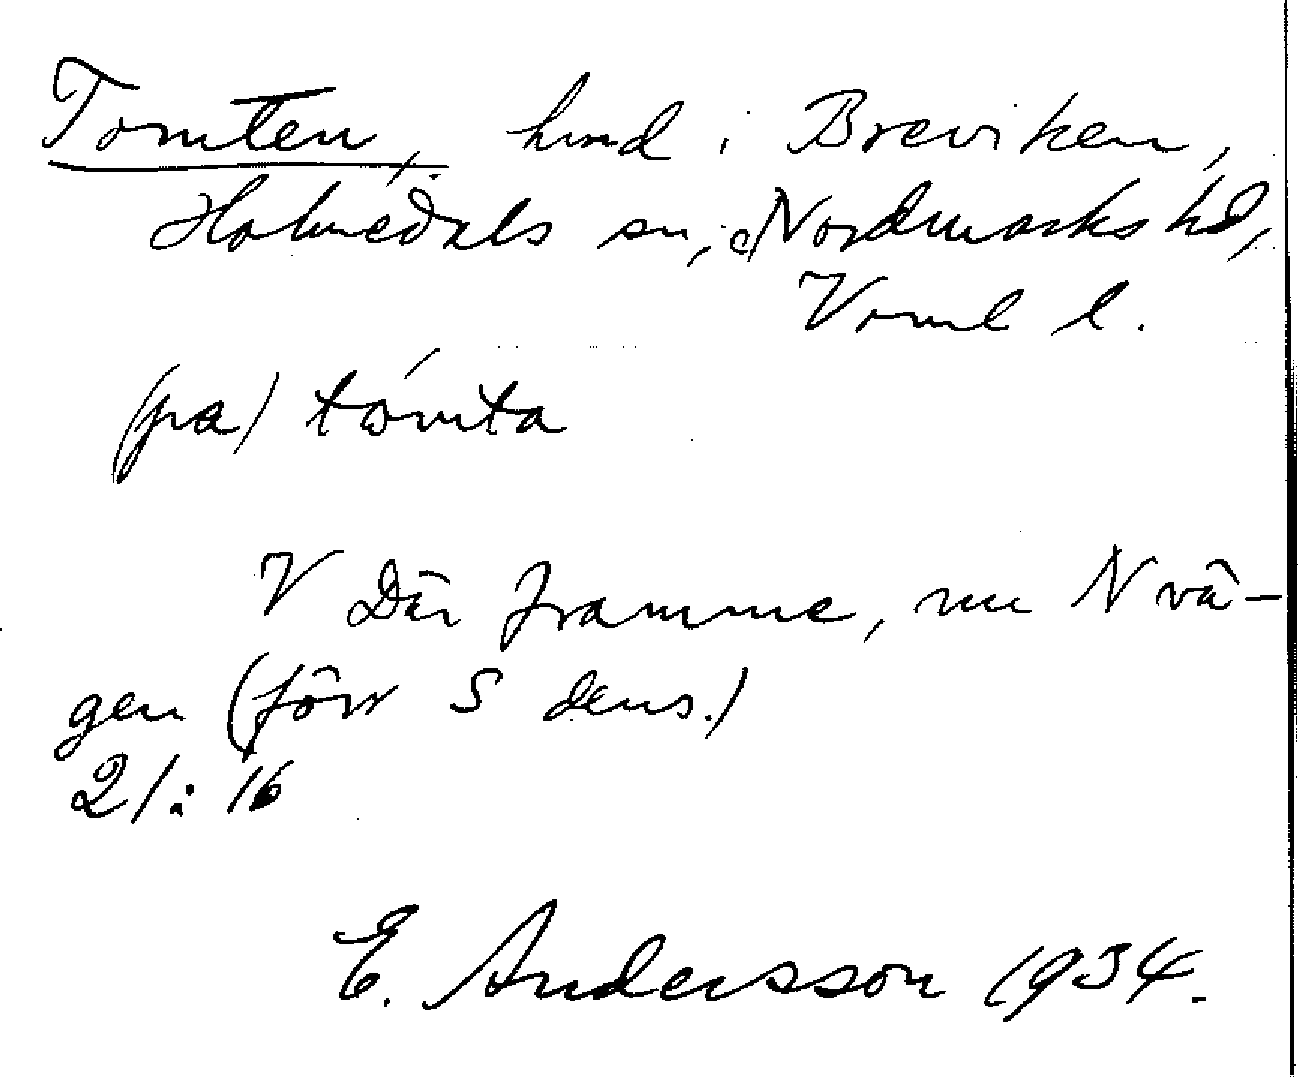 Tomten, hmd i Breviken,
Holmedals sn, Nordmarks hd,
Värml l.
(pa) tómta
V Där framme, nu N vä-
gen (förr S dens.)
21: 16
E. Andersson 1934.